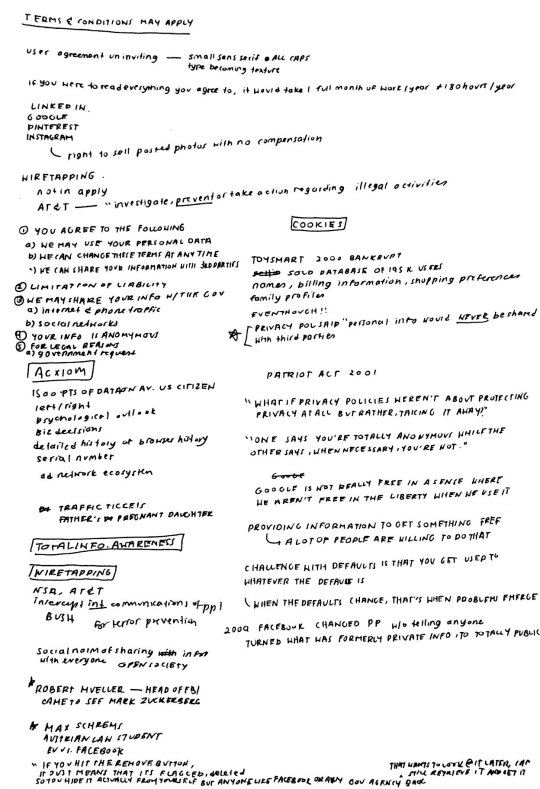 TERMS & CONDITIONS MAY APPLY
user agreement uninviting — small sans serif & ALL CAPS
type becoming texture
if you were to read everything you agree to, it would take 1 full month of work/year * 180 hours / year
LINKED IN.
GOOGLE
PINTEREST
INSTAGRAM
right to sell posted photos with no compensation
WIRETAPPING.
not in apply
AT&T — "investigate, prevent or take action regarding illegal activities
① YOU AGREE TO THE FOLLOWING
a) WE MAY USE YOUR PERSONAL DATA
b) WE CAN CHANGE THESE TERMS AT ANY TIME
c) WE CAN SHARE YOUR INFORMATION WITH 3RD PARTIES
② LIMITATION OF LIABILITY
③ WE MAY SHARE YOUR INFO W/THE GOV
a) internet & phone traffic
b) social networks
④ YOUR INFO IS ANONYMOUS
⑤ FOR LEGAL REASONS
a) government request
ACXIOM
1500 PTS OF DATA ON AV. US CITIZEN
left/right
psychological outlook
Biz decisions
detailed history of browse history
serial number
ad network ecosystem
TRAFFIC TICKETS
FATHER'S PREGNANT DAUGHTER
TOTAL INFO. AWARENESS
WIRETAPPING
NSA, AT&T
intercept int communications of ppl
BUSH for terror prevention
Social norm of sharing with info
with everyone OPEN SOCIETY
* ROBERT MUELLER — HEAD OF FBI
CAME TO SEE MARK ZUCKERBERG
* MAX SCHREMS
AUSTRIAN LAW STUDENT
EU VS. FACEBOOK
COOKIES
TOYSMART 2000 BANKRUPT
SOLD DATABASE OF 195K USERS
names, billing information, shopping preferences
family profiles
EVENTHOUGH!!
PRIVACY POL SAID "personal info would NEVER be shared
with third parties
PATRIOT ACT 2001
"WHAT IF PRIVACY POLICIES WEREN'T ABOUT PROTECTING
PRIVACY AT ALL BUT RATHER, TAKING IT AWAY?"
"ONE SAYS YOU'RE TOTALLY ANONYMOUS WHILE THE
OTHER SAYS, WHEN NECESSARY, YOU'RE NOT."
GOOGLE IS NOT REALLY FREE IN A SENSE WHERE
WE AREN'T FREE IN THE LIBERTY WHEN WE USE IT
PROVIDING INFORMATION TO GET SOMETHING FREE
A LOT OF PEOPLE ARE WILLING TO DO THAT
CHALLENGE WITH DEFAULTS IS THAT YOU GET USED TO
WHATEVER THE DEFAULT IS
WHEN THE DEFAULTS CHANGE, THAT'S WHEN PROBLEMS EMERGE
2009 FACEBOOK CHANGED PP w/o telling anyone
TURNED WHAT WAS FORMERLY PRIVATE INFO, TO TOTALLY PUBLIC
"IF YOU HIT THE REMOVE BUTTON,
IT JUST MEANS THAT ITS FLAGGED, deleted
SO YOU HIDE IT ACTUALLY FROM YOURSELF BUT ANYONE LIKE FACEBOOK OR ANY GOV AGENCY
THAT WANTS TO LOOK @ IT LATER, CAN
STILL RETRIEVE IT AND GET IT
BACK